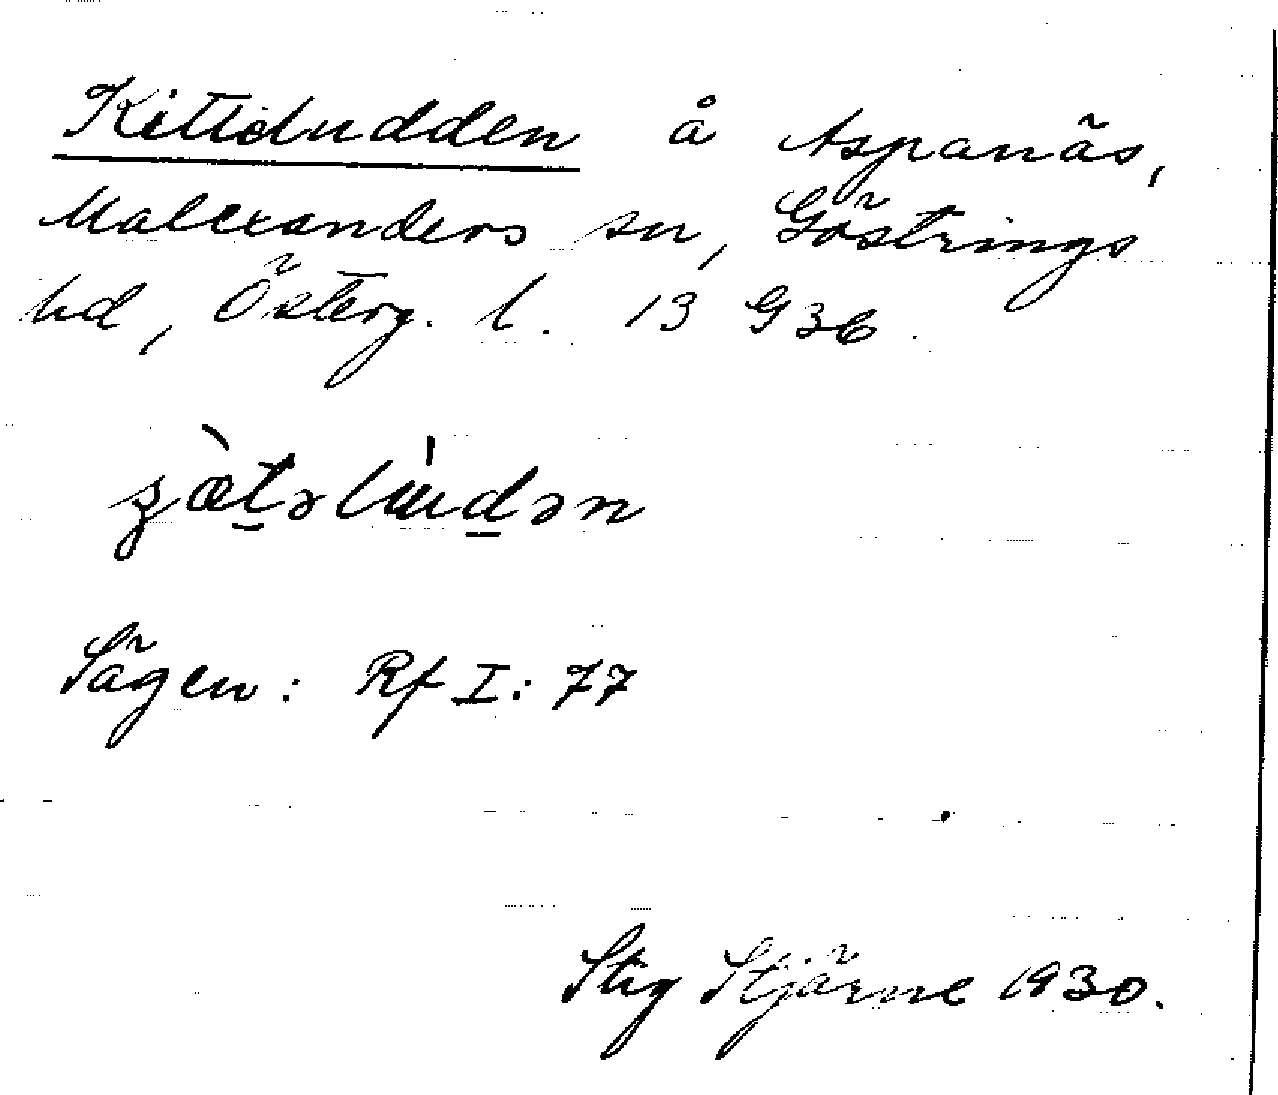 Kitteludden å Aspanäs,
Malexanders sn, Göstrings
hd, Österg. l. 13 G36.
Sägen: Rf I: 77
Stig Stjärne 1930.